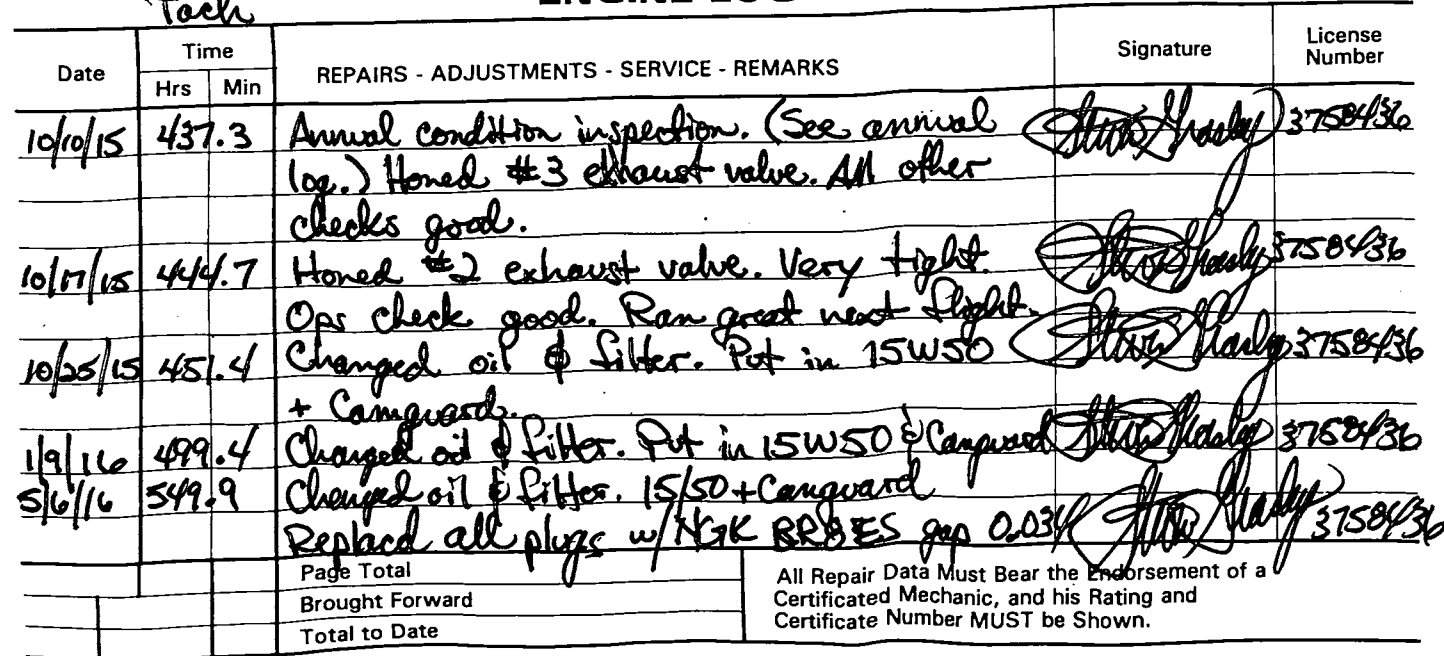 Tach
ENGINE LOG
Date Time REPAIRS - ADJUSTMENTS - SERVICE - REMARKS Signature License Number
Hrs Min
10/10/15 437.3 Annual condition inspection. (See annual 3758436
log.) Honed #3 exhaust valve. All other
checks good.
10/17/15 444.7 Honed #2 exhaust valve. Very tight. 3758436
Ops check good. Ran great next flight.
10/25/15 451.4 Changed oil & filter. Put in 15W50 3758436
+ Camguard.
1/9/16 499.4 Changed oil & filter. Put in 15W50 & Camguard 3758436
5/6/16 549.9 Changed oil & filter. 15/50 + Camguard
Replacd all plugs w/ NGK BR8ES gap 0.034 3758436
Page Total
Brought Forward
Total to Date
All Repair Data Must Bear the Endorsement of a
Certificated Mechanic, and his Rating and
Certificate Number MUST be Shown.